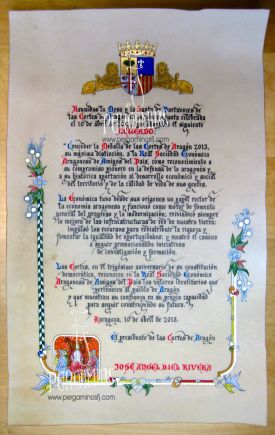 Reunidas la Mesa y la Junta de Portavoces de
las Cortes de
el 10 de abril el siguiente
ACUERDO:
Conceder la Medalla de las Cortes de Aragón 2013,
su máxima distinción, a la Real Sociedad Económica
Aragonesa de Amigos del País, como reconocimiento a
su compromiso pionero en la defensa de lo aragonés y
a su histórica aportación al desarrollo económico y social
del territorio y de la calidad de vida de sus gentes.
La Económica tuvo desde sus orígenes un papel rector de
la economía aragonesa y funcionó como motor de fomento
general del progreso y la modernización; reivindicó siempre
la mejora de las infraestructuras de vida de nuestra tierra;
impulsó los recursos para redistribuir la riqueza y
fomentar la igualdad de oportunidades; y mostró el camino
a seguir promocionando iniciativas
de investigación y formación.
Las Cortes, en el trigésimo aniversario de su constitución
democrática, reconocen en la Real Sociedad Económica
Aragonesa de Amigos del País los valores identitarios que
pertenecen al pueblo de Aragón
y que muestran su confianza en su propia capacidad
para seguir construyendo su futuro.
Zaragoza, 10 de abril de 2013.
El presidente de las Cortes de Aragón
JOSÉ ÁNGEL BIEL RIVERA
PERGAMINOS
www.pergaminosfj.com
www.pergaminosfj.com